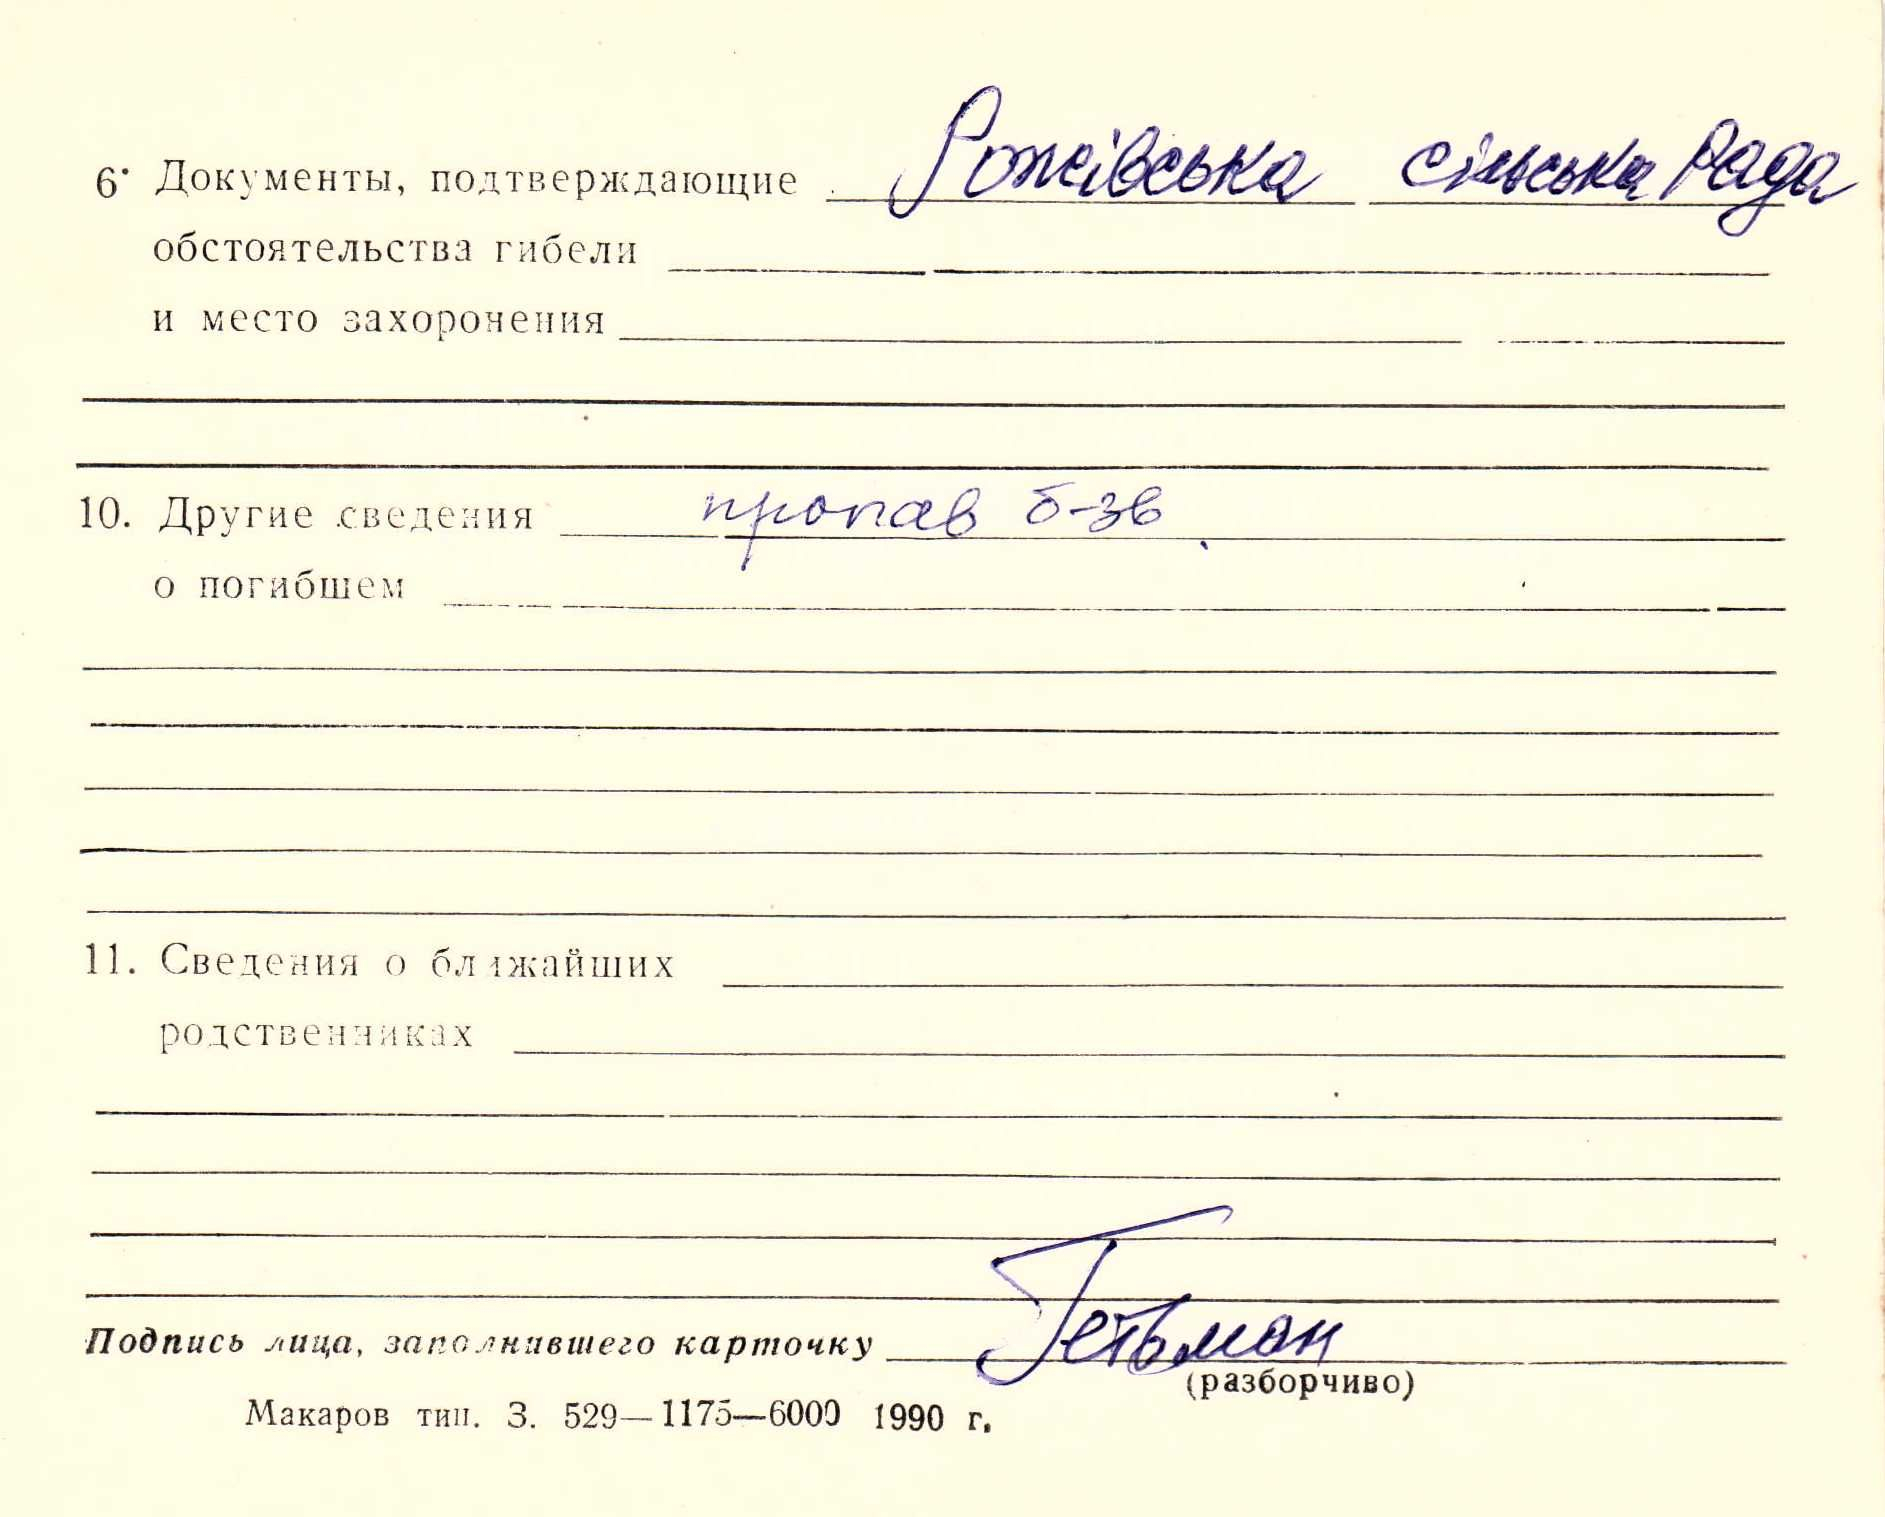 6. Документы, подтверждающие Рожівська сільська Рада
обстоятельства гибели
и место захоронения
10. Другие сведения пропав б-зв
о погибшем
11. Сведения о ближайших
родственниках
Подпись лица, заполнившего карточку Гетьман
(разборчиво)
Макаров тип. З. 529—1175—6000 1990 г.